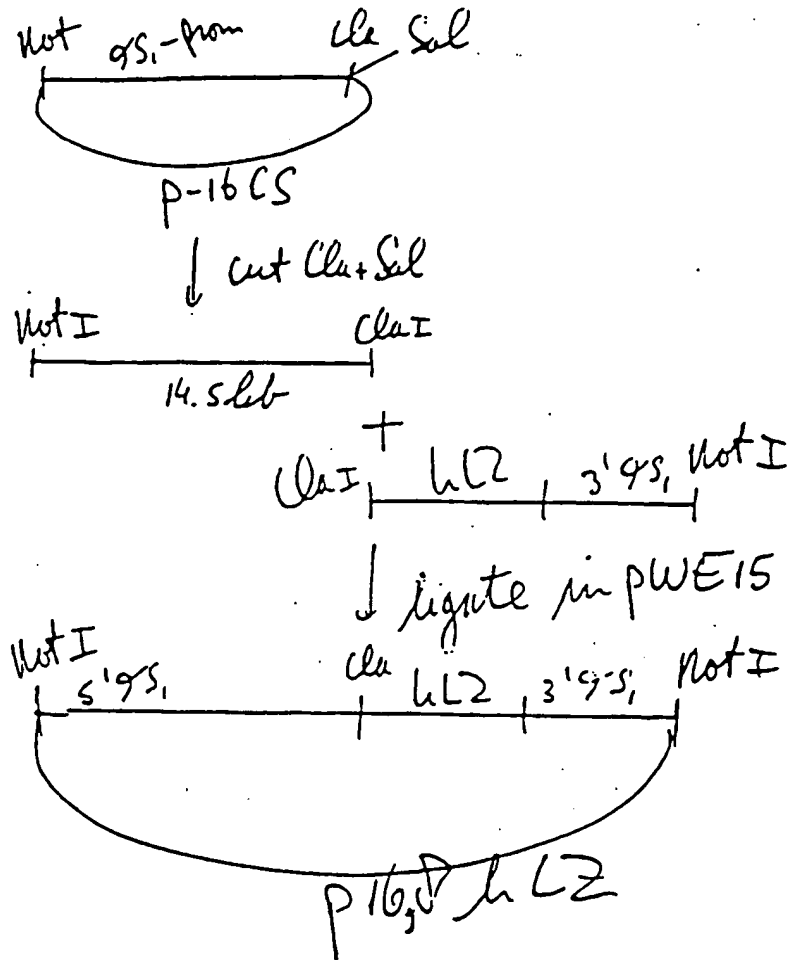 Not αS₁-prom Cla Sal
p-16 CS
↓ cut Cla + Sal
Not I Cla I
14.5 kb
+
Cla I hLZ 3'αS₁ Not I
↓ ligate in pWE15
Not I 5'αS₁ Cla hLZ 3'αS₁ Not I
p16,8 hLZ